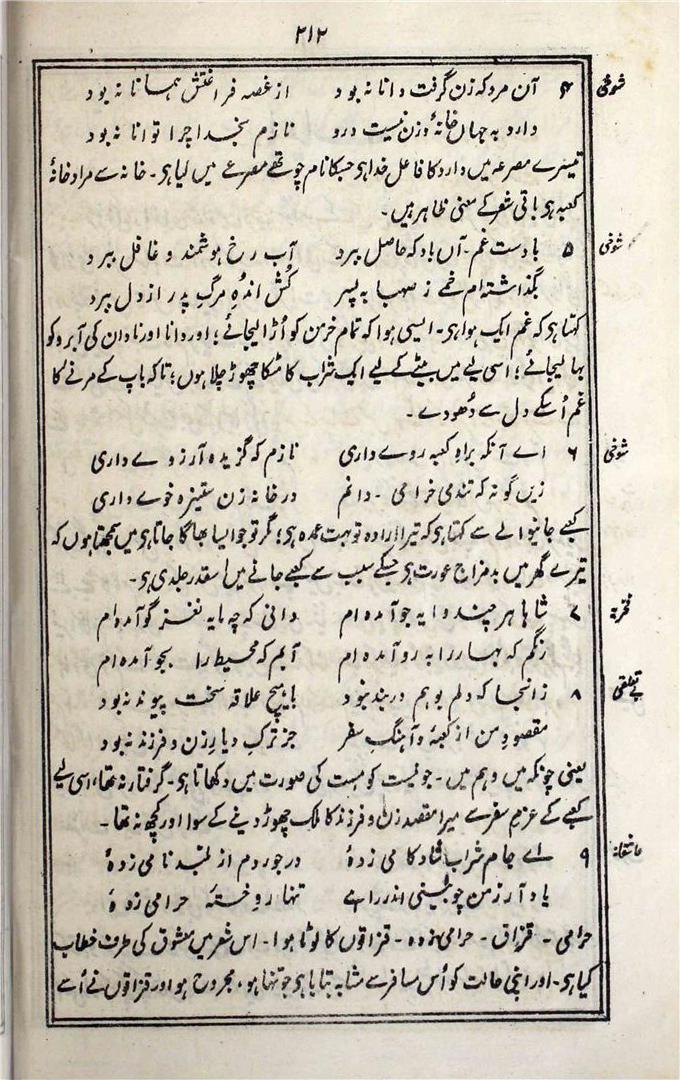 ۲۱۲
شوخی ۴ آن مرد که زن گرفت دانا نہ بود از غصہ فراغتش ہمانا نہ بود
دارد بہ جہاں خانہ و زن نیست درو نازم بخدا چرا توانا نہ بود
تیسرے مصرعہ میں دارد کا فاعل خدا ہو جسکا نام چوتھے مصرعے میں لیا ہو۔ خانہ سے مراد خانۂ
کعبہ ہو باقی شعر کے معنی ظاہر ہیں۔
شوخی ۵ بادست غم۔ آں باد کہ حاصل ببرد آب رخ ہوشمند و غافل ببرد
بگذاشتہ ام خمے ز صہبا بہ پسر کش اندُہِ مرگِ پدر از دل ببرد
کہتا ہو کہ غم ایک ہوا ہو۔ ایسی ہوا کہ تمام خرمن کو اُڑا لیجائے؛ اور دانا اور نادان کی آبرو کو
بہا لیجائے؛ اسی لیے میں بیٹے کے لیے ایک شراب کا مٹکا چھوڑ چلا ہوں؛ تاکہ باپ کے مرنے کا
غم اُسکے دل سے دُھودے۔
شوخی ۶ اے آنکہ براہِ کعبہ روے داری نازم کہ گزیدہ آرزوے داری
زیں گونہ کہ تند می خرامی۔ دانم در خانہ زن ستیزہ خوے داری
کعبے جانیوالے سے کہتا ہو کہ تیرا ارادہ تو بہت عمدہ ہو؛ مگر تو جو ایسا بھاگا جاتا ہو میں سمجھتا ہوں کہ
تیرے گھر میں بدمزاج عورت ہو جسکے سبب سے کعبے جانے میں اسقدر جلدی ہو۔
فخریہ ۷ شاہا ہر چند وایہ جو آمدہ ام دانی کہ چہ مایہ نغز گو آمدہ ام
رنگم کہ بہار را بہ رو آمدہ ام آبم کہ محیط را بجو آمدہ ام
بے تعلقی ۸ زانجا کہ دلم بوہم در بند نبود با ہیچ علاقہ سخت پیوند نہ بود
مقصودِ من از کعبہ و آہنگ سفر جز ترکِ دیارِ زن و فرزند نہ بود
یعنی چونکہ میں وہم میں۔ جو نیست کو ہست کی صورت میں دکھاتا ہو۔ گرفتار نہ تھا، اسی لیے
کعبے کے عزم سفر سے میرا مقصد زن و فرزند کا ملک چھوڑ دینے کے سوا اور کچھ نہ تھا۔
عاشقانہ ۹ اے جام شراب شادکامی زدۂ در جور دم از بلند نامی زدۂ
یاد آر ز من چو بینی اندر راہے تنہا رو خستۂ حرامی زدۂ
حرامی۔ قزاق۔ حرامی زدہ۔ قزاقوں کا لوٹا ہوا۔ اس شعر میں معشوق کی طرف خطاب
کیا ہو۔ اور اپنی حالت کو اُس مسافر سے مشابہ بتایا ہو جو تنہا ہو، مجروح ہو اور قزاقوں نے اُسے